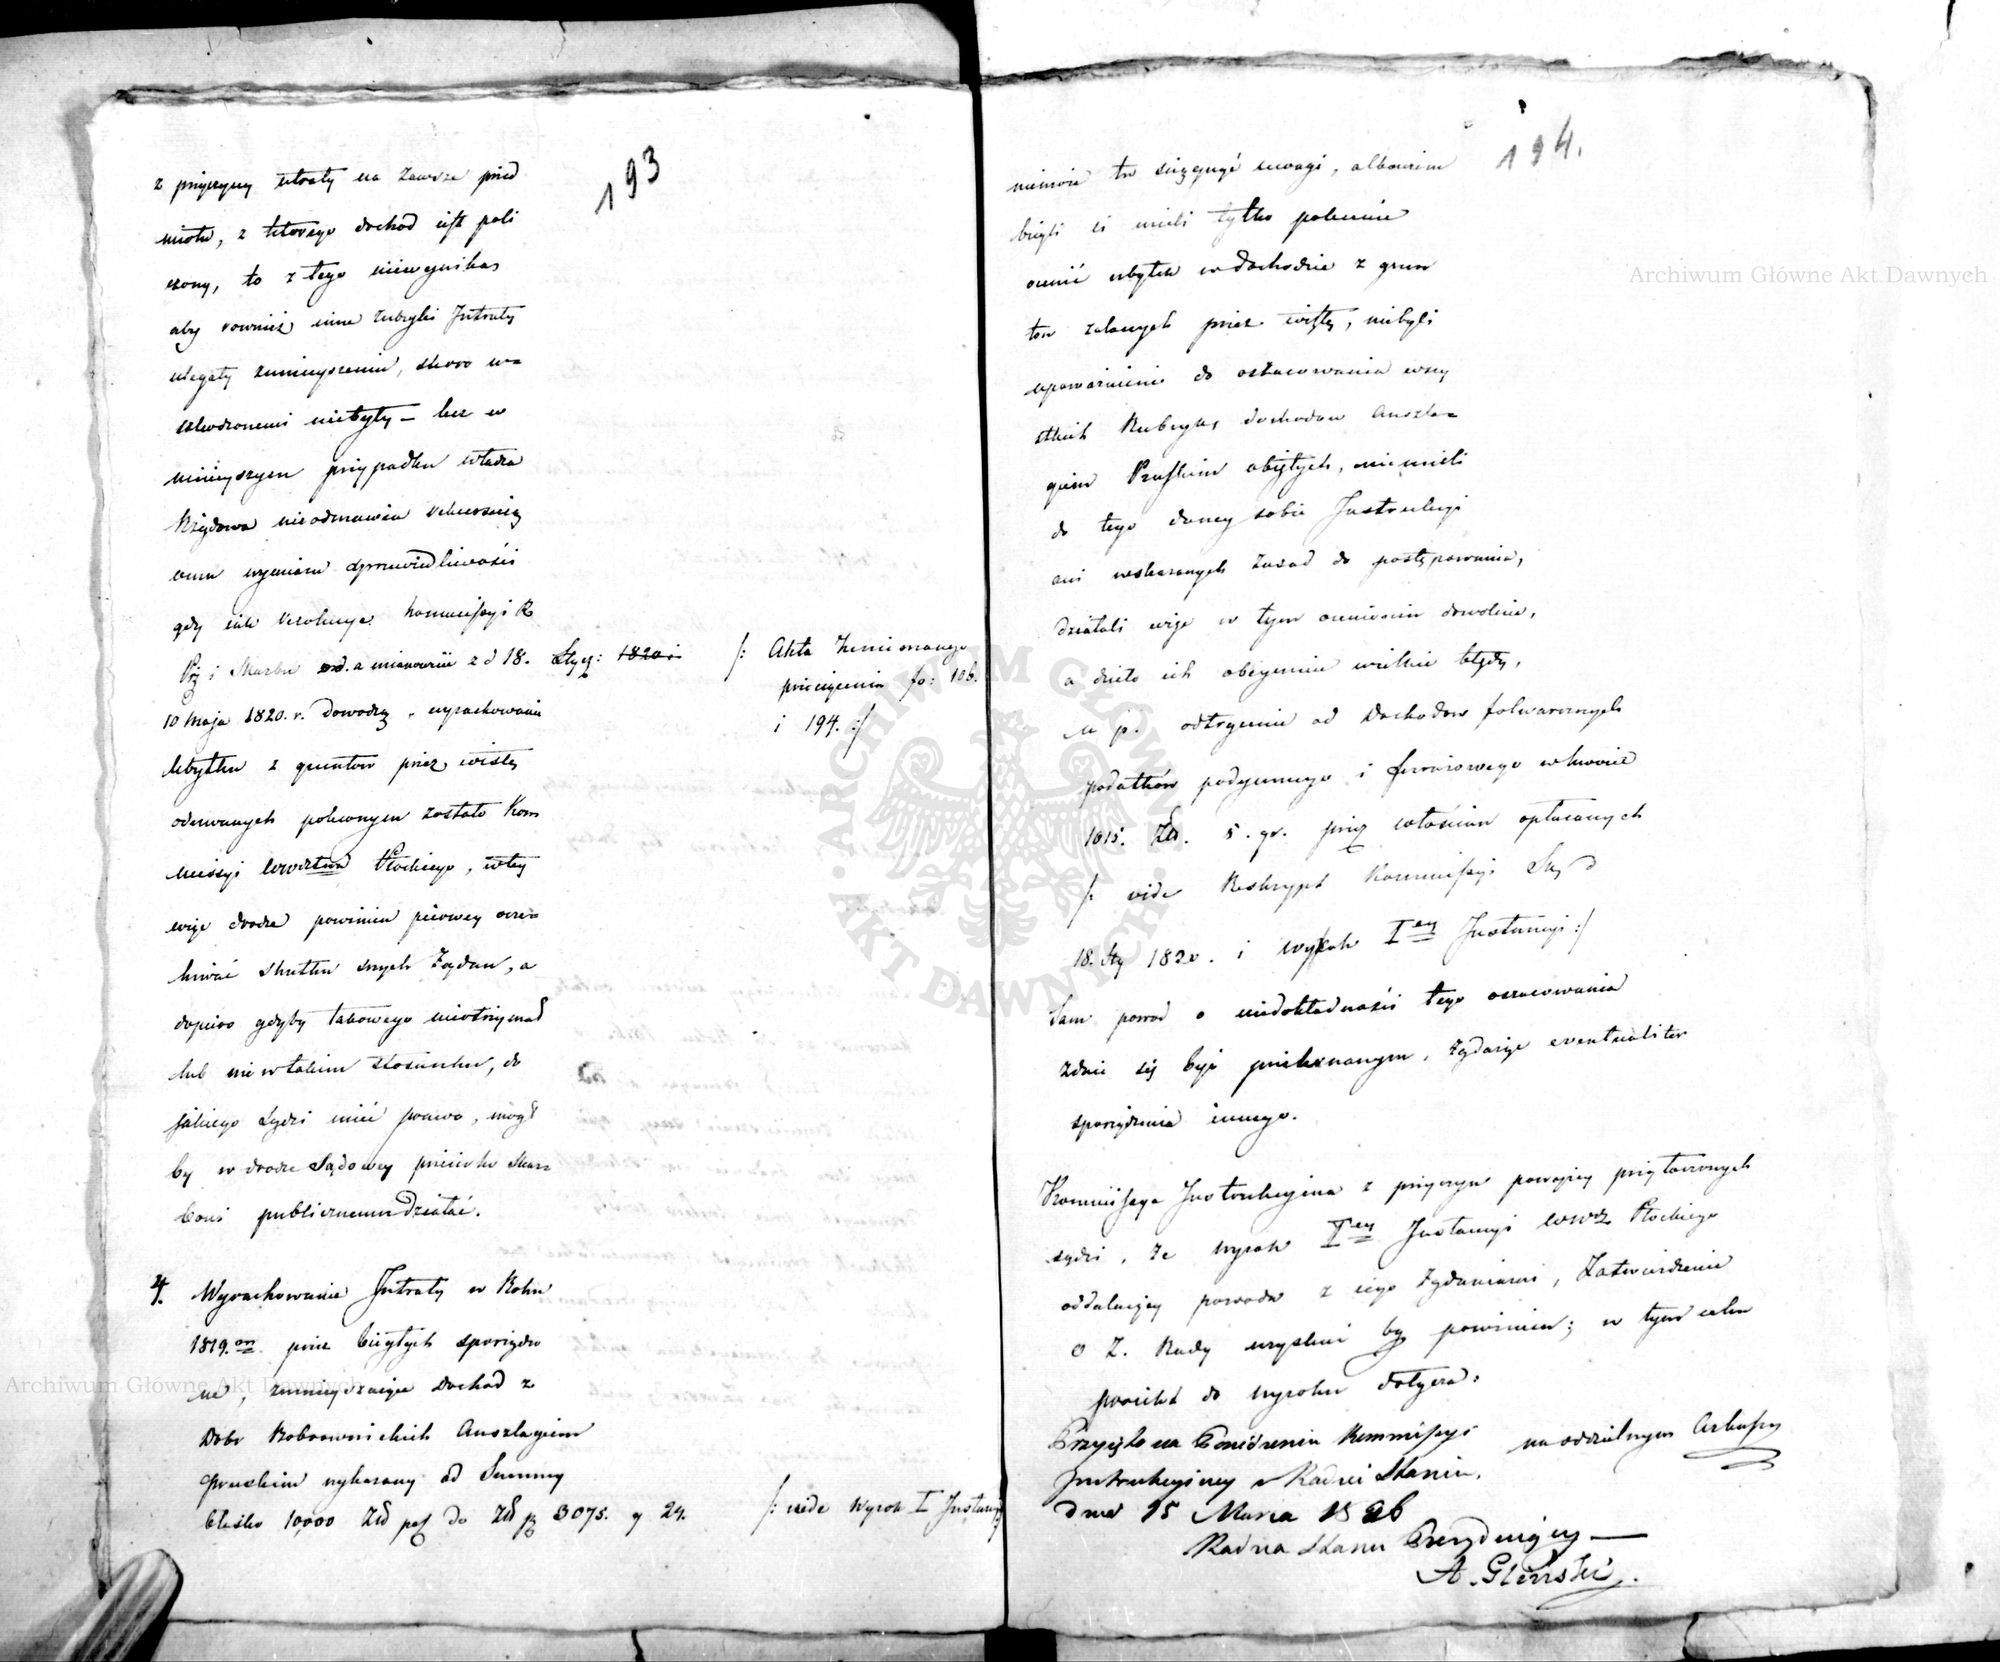 193
z przyczyny utraty na zawsze przed
miotu, z którego dochód jest poli
czony, to z tego niewynika
aby rownież inne rubryki Intraty
ulegały zmnieyszeniu, skoro u=
szkodzonemi niebyły – bez w
ninieyszym przypadku władza
Rządowa nieodmawia rekurse
emu wymiaru sprawiedliwości
gdy jak rezolucye Kommissyi R
Prz i Skarbu a mianowicie z d 18. Stycz: 1820 i
10 Maja 1820. r. dowodzą, wyrachowanie
Ubytku z gruntow przez wisłę
oderwanych polecnym zostało Kom
missyi Wwdztwa Płockiego, w tey
więc drodze powinien pierwey ocze=
kiwać skutku swych żądan, a
dopiero gdyby takowego nieotrzymał
lub nie w takim stosunku, do
jakiego sądzi mieć prawo, mógł
by w drodze Sądowey przeciwko Skar
bowi publicznemu działać.
/: Akta Zmienionego
fo: 106.
i 194. :/
4. Wyrachowanie Intraty w Roku
1819. przez biegłych sporządzo
ne, zmnieyszaiące dochód z
Dobr Bobrownickich Anszlagiem
Pruskim wykazany od Summy
blisko 10,000 Złł pol do Złł p 3075. g 24.
/: vide Wyrok I Instancyi
194.
niemoże tu sięgnąć uwagi, albowiem
biegli ci mieli tylko polecenie
ocenić ubytek w dochodzie z grun
tow zalanych przez wisłę, niebyli
upoważnieni do oszacowania wszy
stkich Rubryk, dochodow Anszla=
giem Pruskim objętych, nie mieli
do tego daney sobie Instrukcyi
ani wskazanych zasad do postępowania,
działali więc w tym ocenieniu dowolnie,
a dzieło ich obeymuie wielkie błędy,
n p. odtrącenie od Dochodow folwarcznych
podatków podymnego i szarwarkowego w kwocie
1015. Złł. 5. gr. przez włościan opłacanych
/: vide Reskrypt Kommissyi d
18. Sty 1820. i wyrok I ey Instancyi :/
Sam powod o niedokładności tego oszacowania
zdaie się być przekonanym, żądaiąc eventualiter
sporządzenia innego.
Kommissya Instrukcyina z przyczyn powyżey przytoczonych
sądzi, że wyrok I ey Instancyi Wwdz Płockiego
oddalaiący powoda z iego żądaniami, Zatwierdzenie
O Z. Rady uzyskać by powinien; w tym celu
proiekt do wyroku dołącza:
na oddzielnym Arkuszu
Przyięto na Posiedzeniu Kommissyi
Instrukcyiney w Radzie Stanu.
dnia 15 Marca 1826
Radca Stanu Prezyduiący
A. Gliński.
Archiwum Główne Akt Dawnych
Archiwum Główne Akt Dawnych
ARCHIWUM GŁÓWNE AKT DAWNYCH